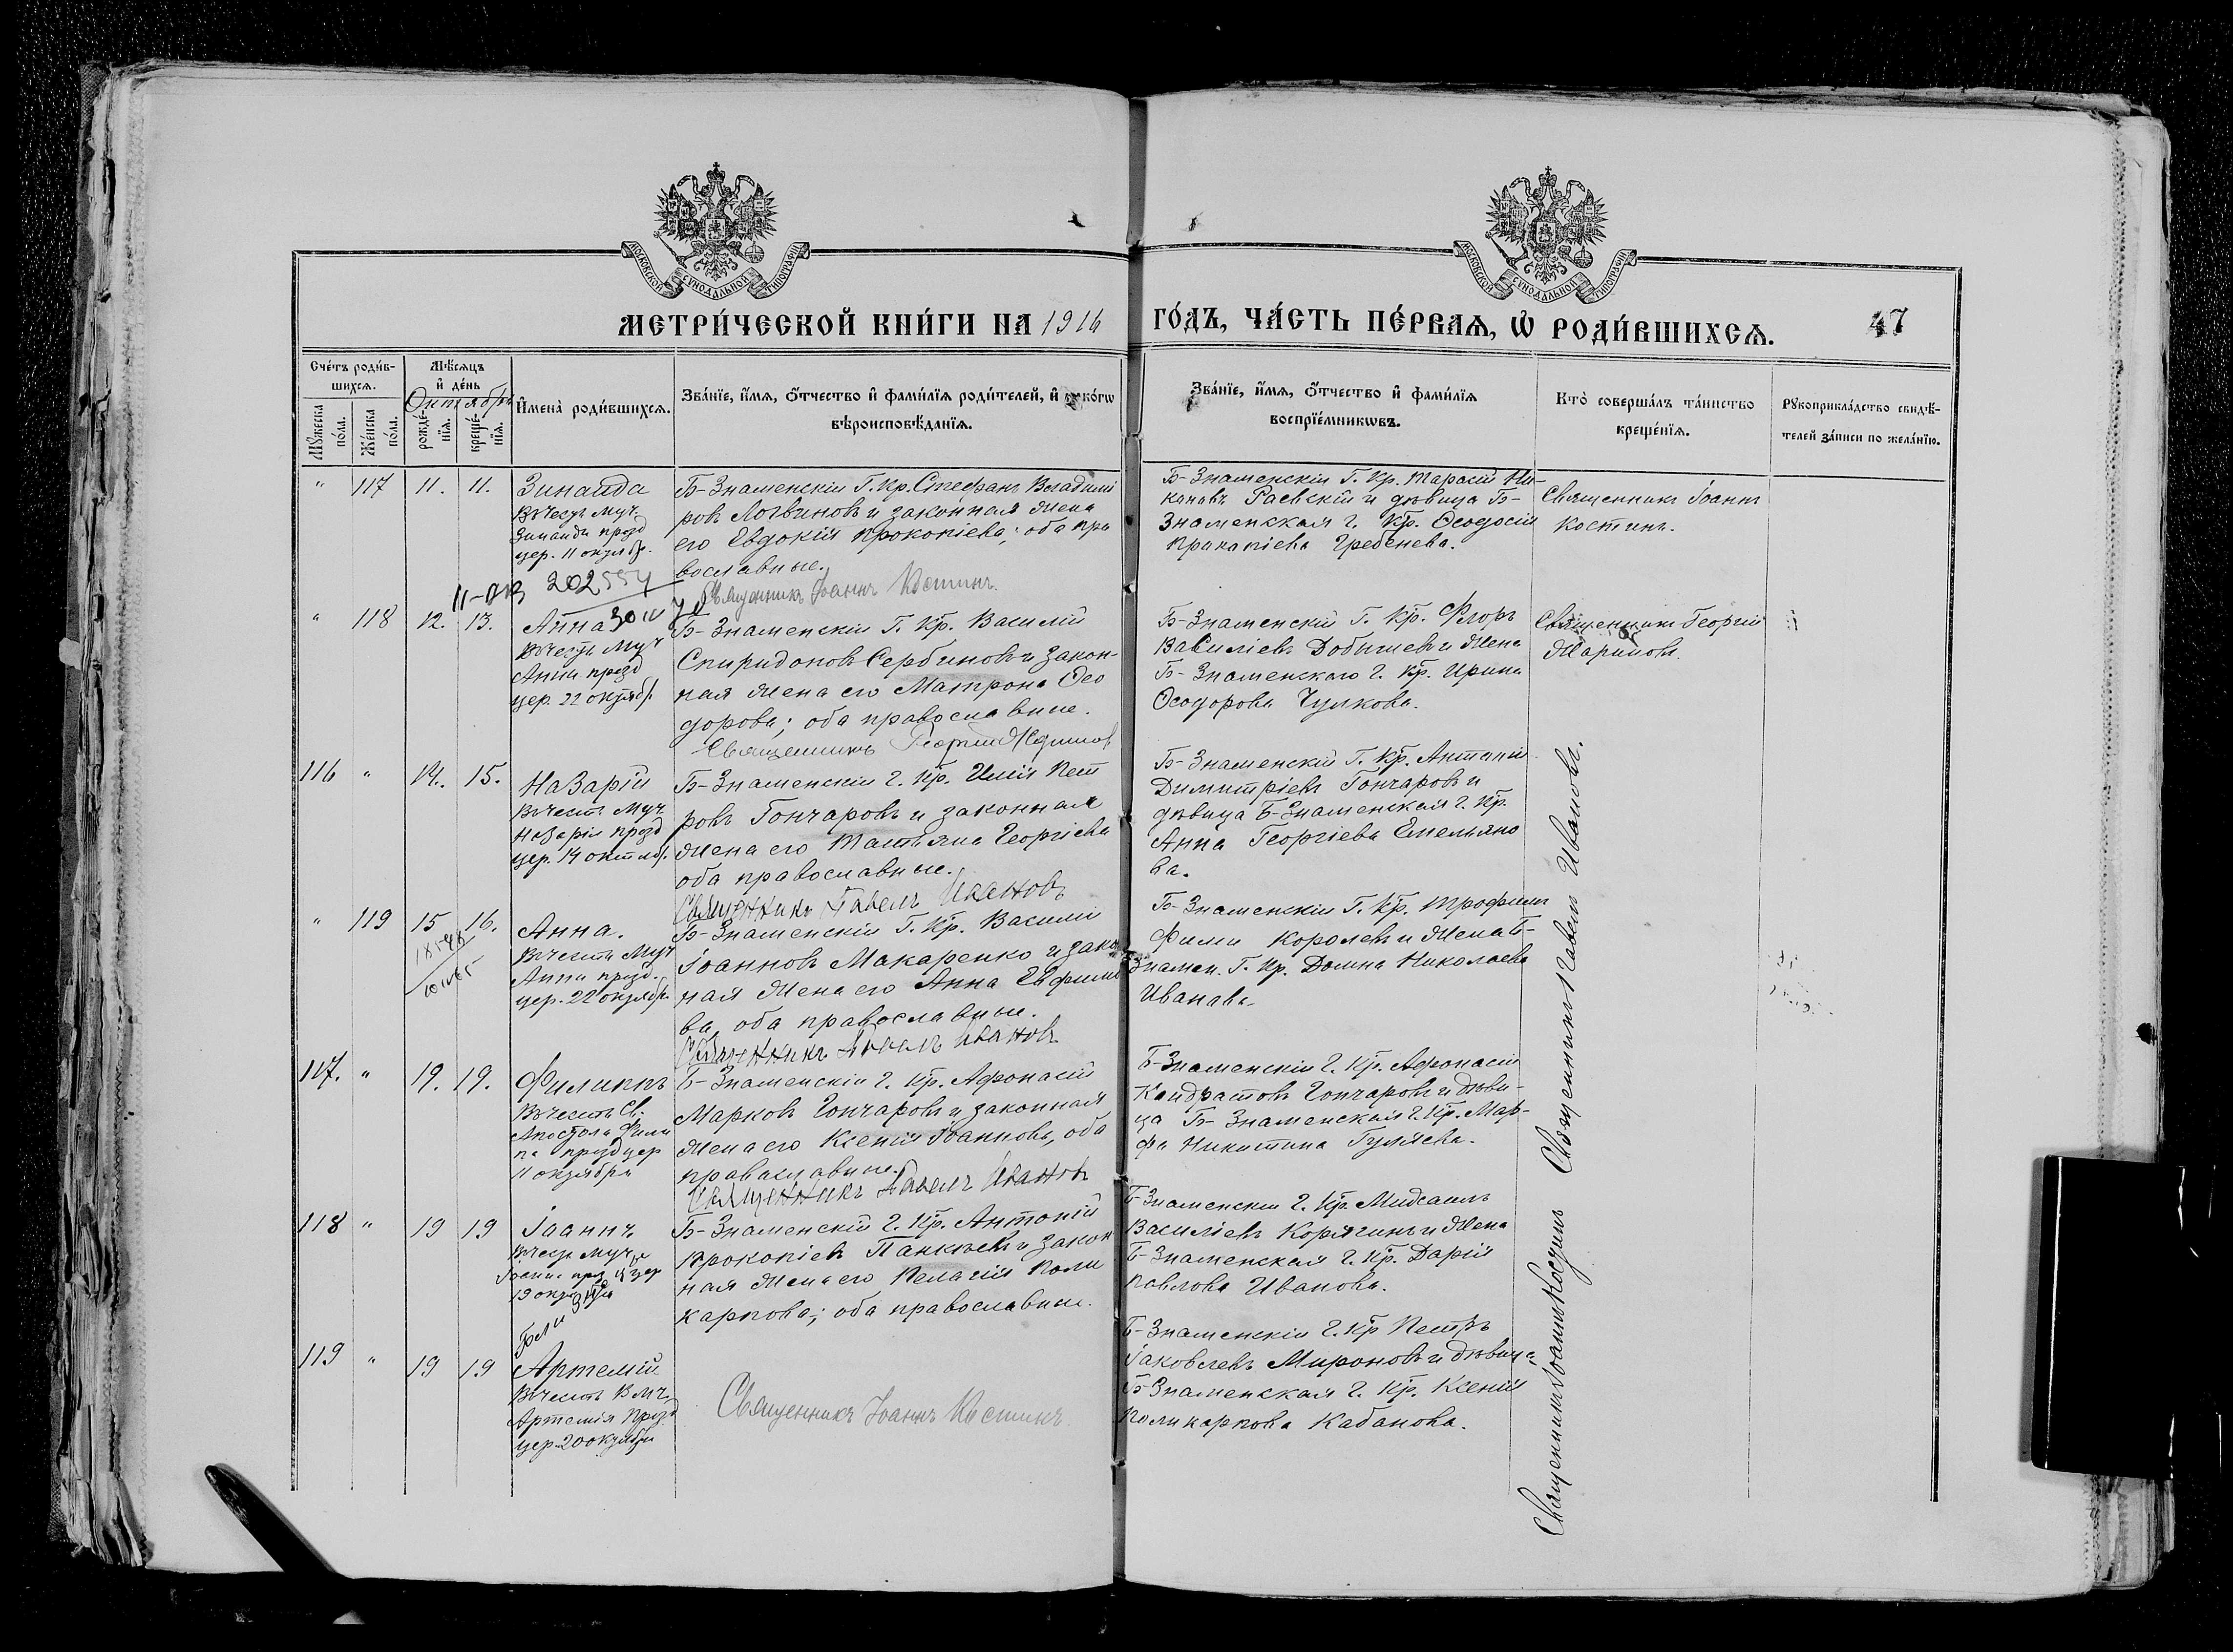 МОСКОВСКОЙ СУНОДАЛЬНОЙ ТИПОГРАФІИ
МОСКОВСКОЙ СУНОДАЛЬНОЙ ТИПОГРАФІИ
МЕТРИ́ЧЕСКОЙ КНИ́ГИ НА 1916 ГО́ДЪ, ЧА́СТЬ ПЕ́РВАЯ, Ѡ РОДИ́ВШИХСЯ.
47
Сче́тъ роди́в-
шихся.
Мꙋ́жеска
по́ла.
Же́нска
по́ла.
Мѣ́сяцъ
и҆ де́нь
Октябрь
рожде́-
нїя.
креще́-
нїя.
И҆мена̀ роди́вшихся.
Зва́нїе, и҆́мя, ѻ҆́тчество и҆ фами́лїя роди́телей, и҆ ко́гѡ
вѣроисповѣ́данїя.
Зва́нїе, и҆́мя, ѻ҆́тчество и҆ фами́лїя
воспрїе́мникѡвъ.
Кто̀ соверша́лъ та́инство
креще́нїя.
Рꙋкоприкла́дство свидѣ́-
телей за́писи по жела́нїю.
" 117 11. 11.
Зинаида
Въ честь Муч.
Зинаиды празд
цер. 11 октябр.
Б-Знаменскій Г. Кр. Стефанъ Владимі
ровъ Логвиновъ и законная жена
его Евдокія Прокопіева; оба пра
вославные.
Священникъ Іоаннъ Костинъ.
Б-Знаменскій Г. Кр. Тарасій Ни-
кановъ Раевскій и дѣвица Б-
Знаменская г. Кр. Ѳеодосія
Пракапіева Гребенева.
Священникъ Іоаннъ
Костинъ.
202554
" 118 12. 13.
Анна
Въ честь Муч
Анны празд
цер. 22 октябр.
Б-Знаменскій Г. Кр. Василій
Спиридоновъ Сербиновъ и закон-
ная жена его Матрона Ѳео
дорова; оба православные.
Священникъ Георгій
Б-Знаменскій Г. Кр. Флоръ
Василіевъ Добышевъ и жена
Б-Знаменскаго г. Кр. Ирина
Ѳеодорова Чулкова.
Священникъ Георгій
116 " 14. 15.
Назарій
Въ честь Муч
Назарія празд
цер. 14 октябр.
Б-Знаменскій г. Кр. Илія Пет
ровъ Гончаровъ и законная
жена его Татьяна Георгіева
оба православные.
Священникъ Павелъ Ивановъ
Б-Знаменскій Г. Кр. Антоній
Димитріевъ Гончаровъ и
дѣвица Б-Знаменская г. Кр.
Анна Георгіева Емельяно
ва.
" 119 15 16.
Анна.
Въ честь Муч
Анны празд.
цер. 22 октябр.
Б-Знаменскій Г. Кр. Василій
Іоанновъ Макаренко и закон
ная жена его Анна Евфиміе
ва, оба православные.
Священникъ Павелъ Ивановъ
Б-Знаменскій Г. Кр. Трофимъ
Королевъ и жена Б-
Знамен. Г. Кр. Домна Николаева
Иванова.
117. " 19. 19.
Филиппъ
Въ честь Св.
Апостола Фили
па празд цер
11 октября
Б-Знаменскій г. Кр. Афонасій
Марковъ Гончаровъ и законная
жена его Ксенія Іоаннова, оба
православные.
Священникъ Павелъ Ивановъ
Б-Знаменскій г. Кр. Афонасій
Кондратовъ Гончаровъ и дѣви-
ца Б-Знаменская г. Кр. Мар-
фа Никитина Гуляева.
118 " 19 19
Іоаннъ
19 октября
Б-Знаменскій г. Кр. Антоній
Прокопіевъ Панкѣевъ и закон
ная жена его Пелагія Поли
карпова; оба православные.
Б-Знаменскій г. Кр. Мидсаилъ
Василіевъ Корягинъ и жена
Б-Знаменская г. Кр. Дарія
Павлова Иванова.
Близнецы
119 " 19 19
Артемій
Въ честь Вмч
Артемія празд
цер 20 октября
Священникъ Іоаннъ Костинъ.
Б-Знаменскій г. Кр Петръ
Іаковлевъ Мироновъ и дѣвица
Б-Знаменская г. Кр. Ксенія
Поликарпова Кабанова.
Священникъ Іоаннъ Костинъ Священникъ Павелъ Ивановъ.